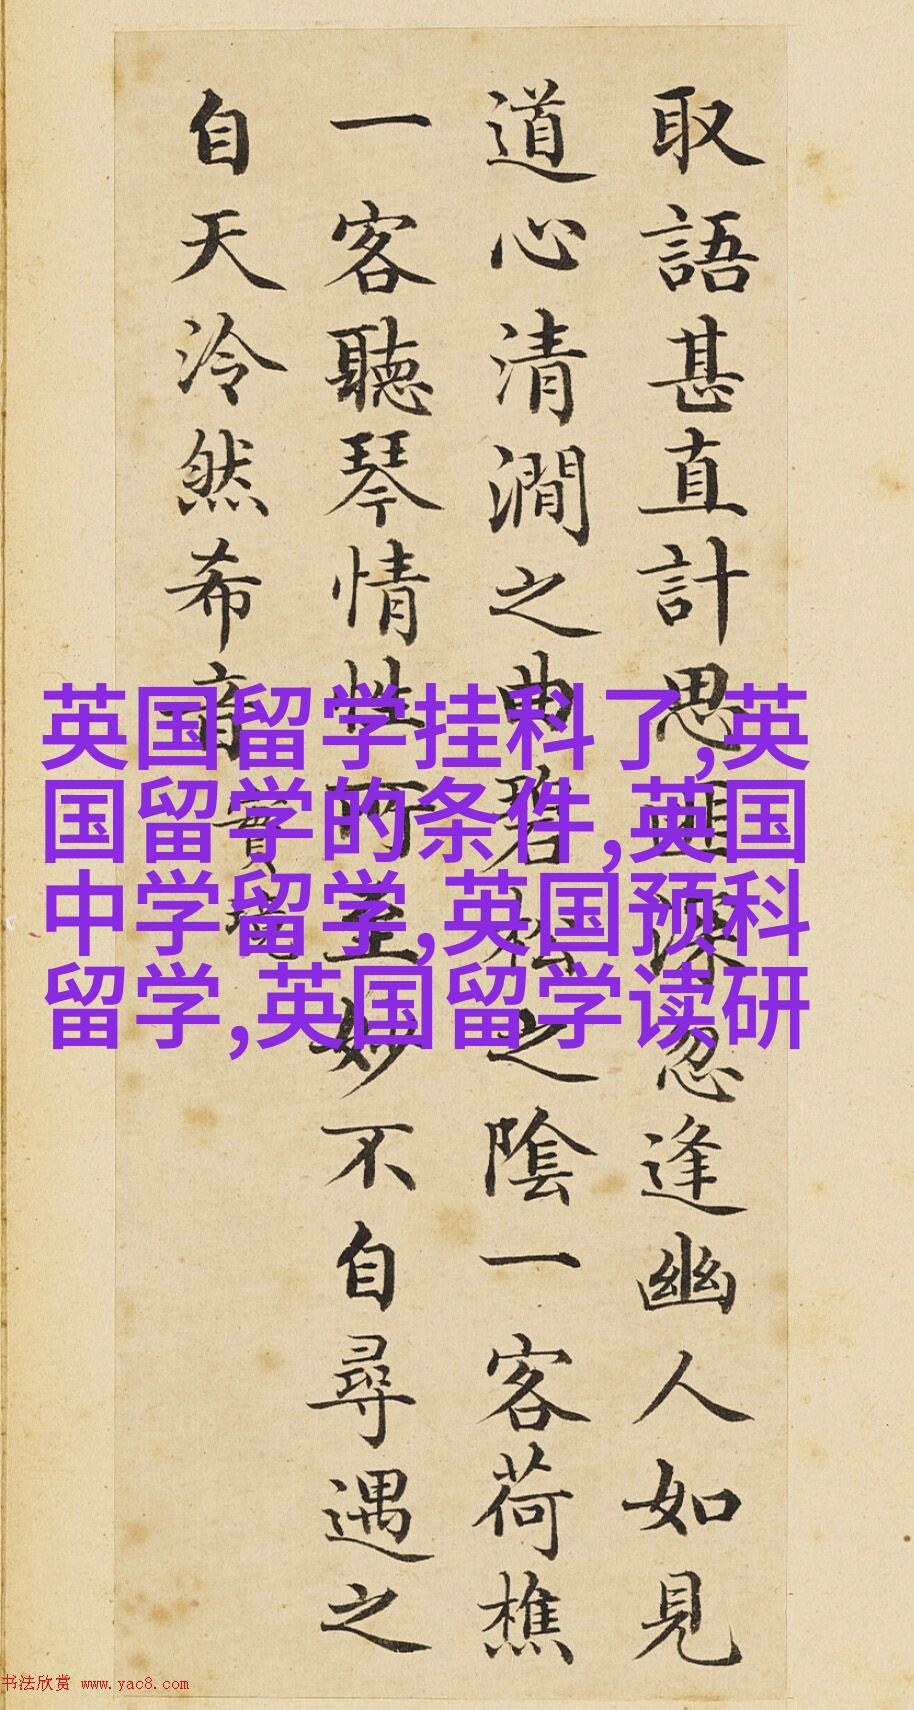 取語甚直計思匪深忽逢幽人如見
道心清澗之曲碧松之陰一客荷樵
一客聽琴情性所至妙不自尋遇之
自天泠然希音
實
英国留学挂科了,英
国留学的条件,英国
中学留学,英国预科
留学,英国留学读研
书法欣赏 www.yac8.com